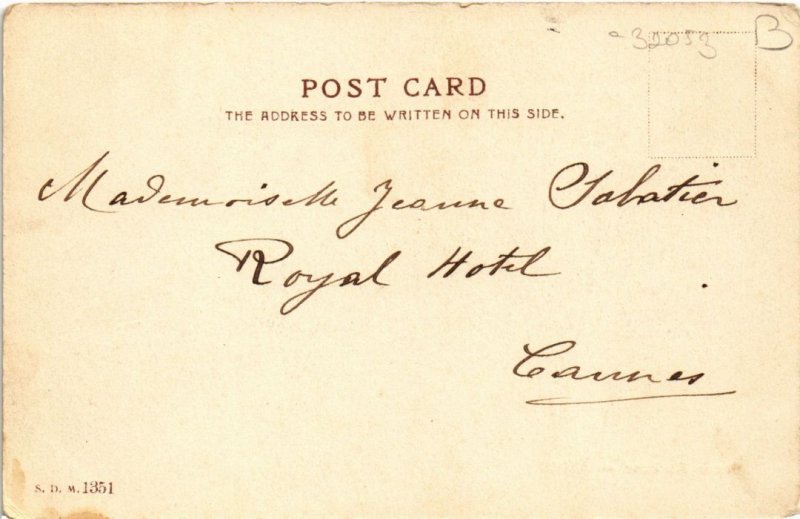 32053 B
POST CARD
THE ADDRESS TO BE WRITTEN ON THIS SIDE.
Mademoiselle Jeanne Sabatier
Royal Hotel
Cannes
S. D. M. 1351